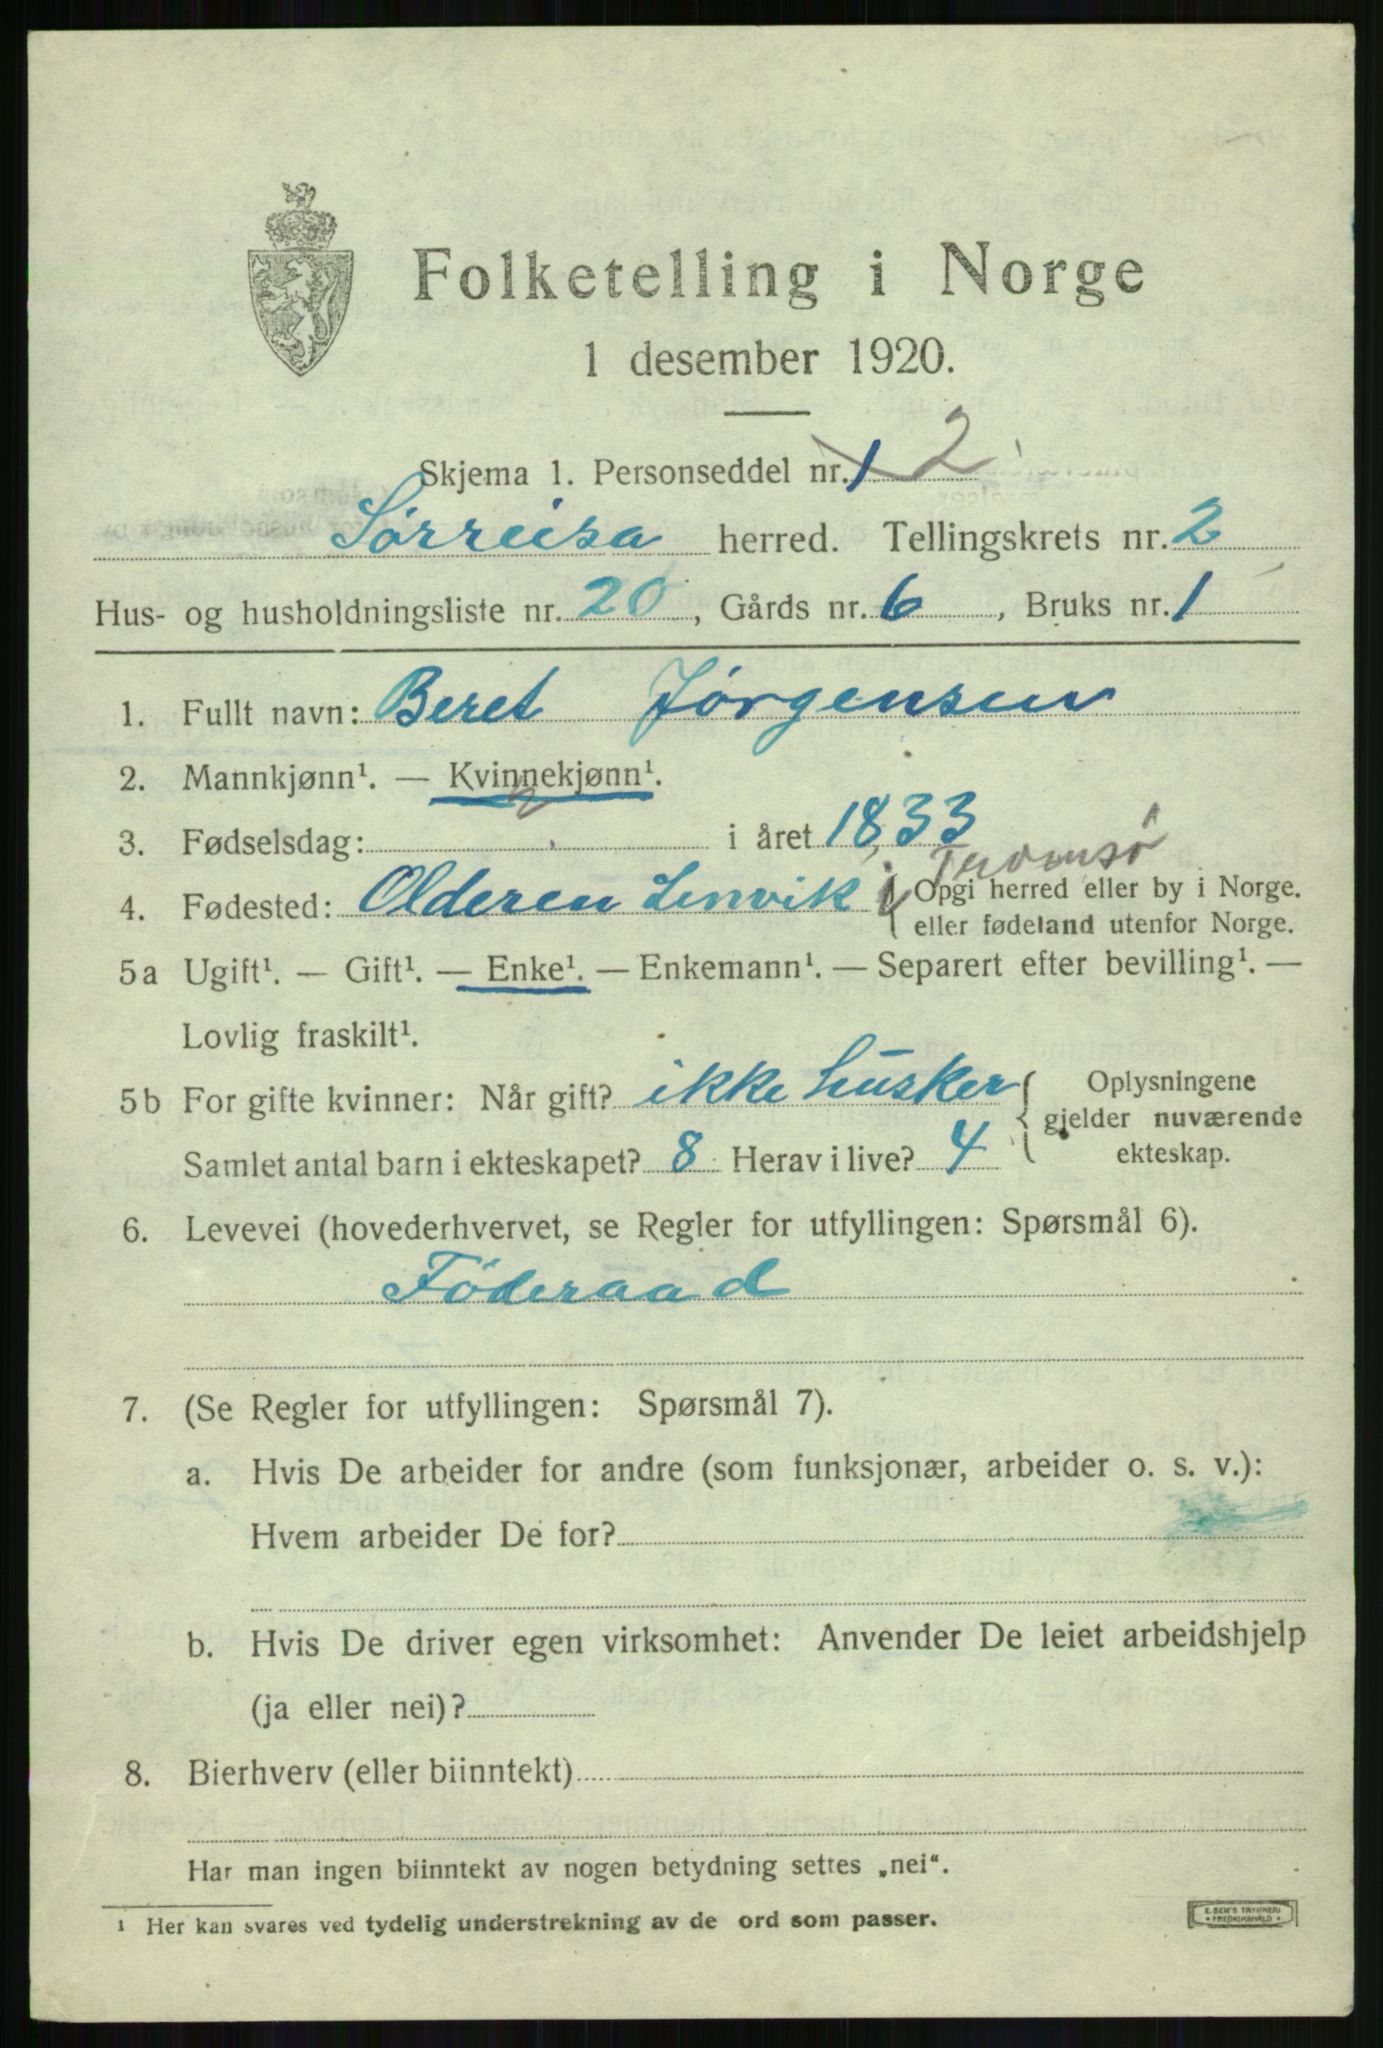 Folketelling i Norge
1 desember 1920.
Skjema 1. Personseddel nr. 1 2
Sørreisa herred. Tellingskrets nr. 2
Hus- og husholdningsliste nr. 20, Gårds nr. 6, Bruks nr. 1
1. Fullt navn: Beret Jørgensen
2. Mannkjønn¹. — Kvinnekjønn¹.
3. Fødselsdag: i året 1833
Tromsø
4. Fødested: Olderen Lenvik { Opgi herred eller by i Norge.
eller fødeland utenfor Norge.
5a Ugift¹. — Gift¹. — Enke¹. — Enkemann¹. — Separert efter bevilling¹. —
Lovlig fraskilt¹.
5b For gifte kvinner: Når gift? ikke husker { Oplysningene
gjelder nuværende
Samlet antal barn i ekteskapet? 8 Herav i live? 4 ekteskap.
6. Levevei (hovederhvervet, se Regler for utfyllingen: Spørsmål 6).
Föderaad
7. (Se Regler for utfyllingen: Spørsmål 7).
a. Hvis De arbeider for andre (som funksjonær, arbeider o. s. v.):
Hvem arbeider De for?
b. Hvis De driver egen virksomhet: Anvender De leiet arbeidshjelp
(ja eller nei)?
8. Bierhverv (eller biinntekt)
Har man ingen biinntekt av nogen betydning settes „nei“.
¹ Her kan svares ved tydelig understrekning av de ord som passer.
E. SEM'S TRYKKERI
FREDRIKSHALD